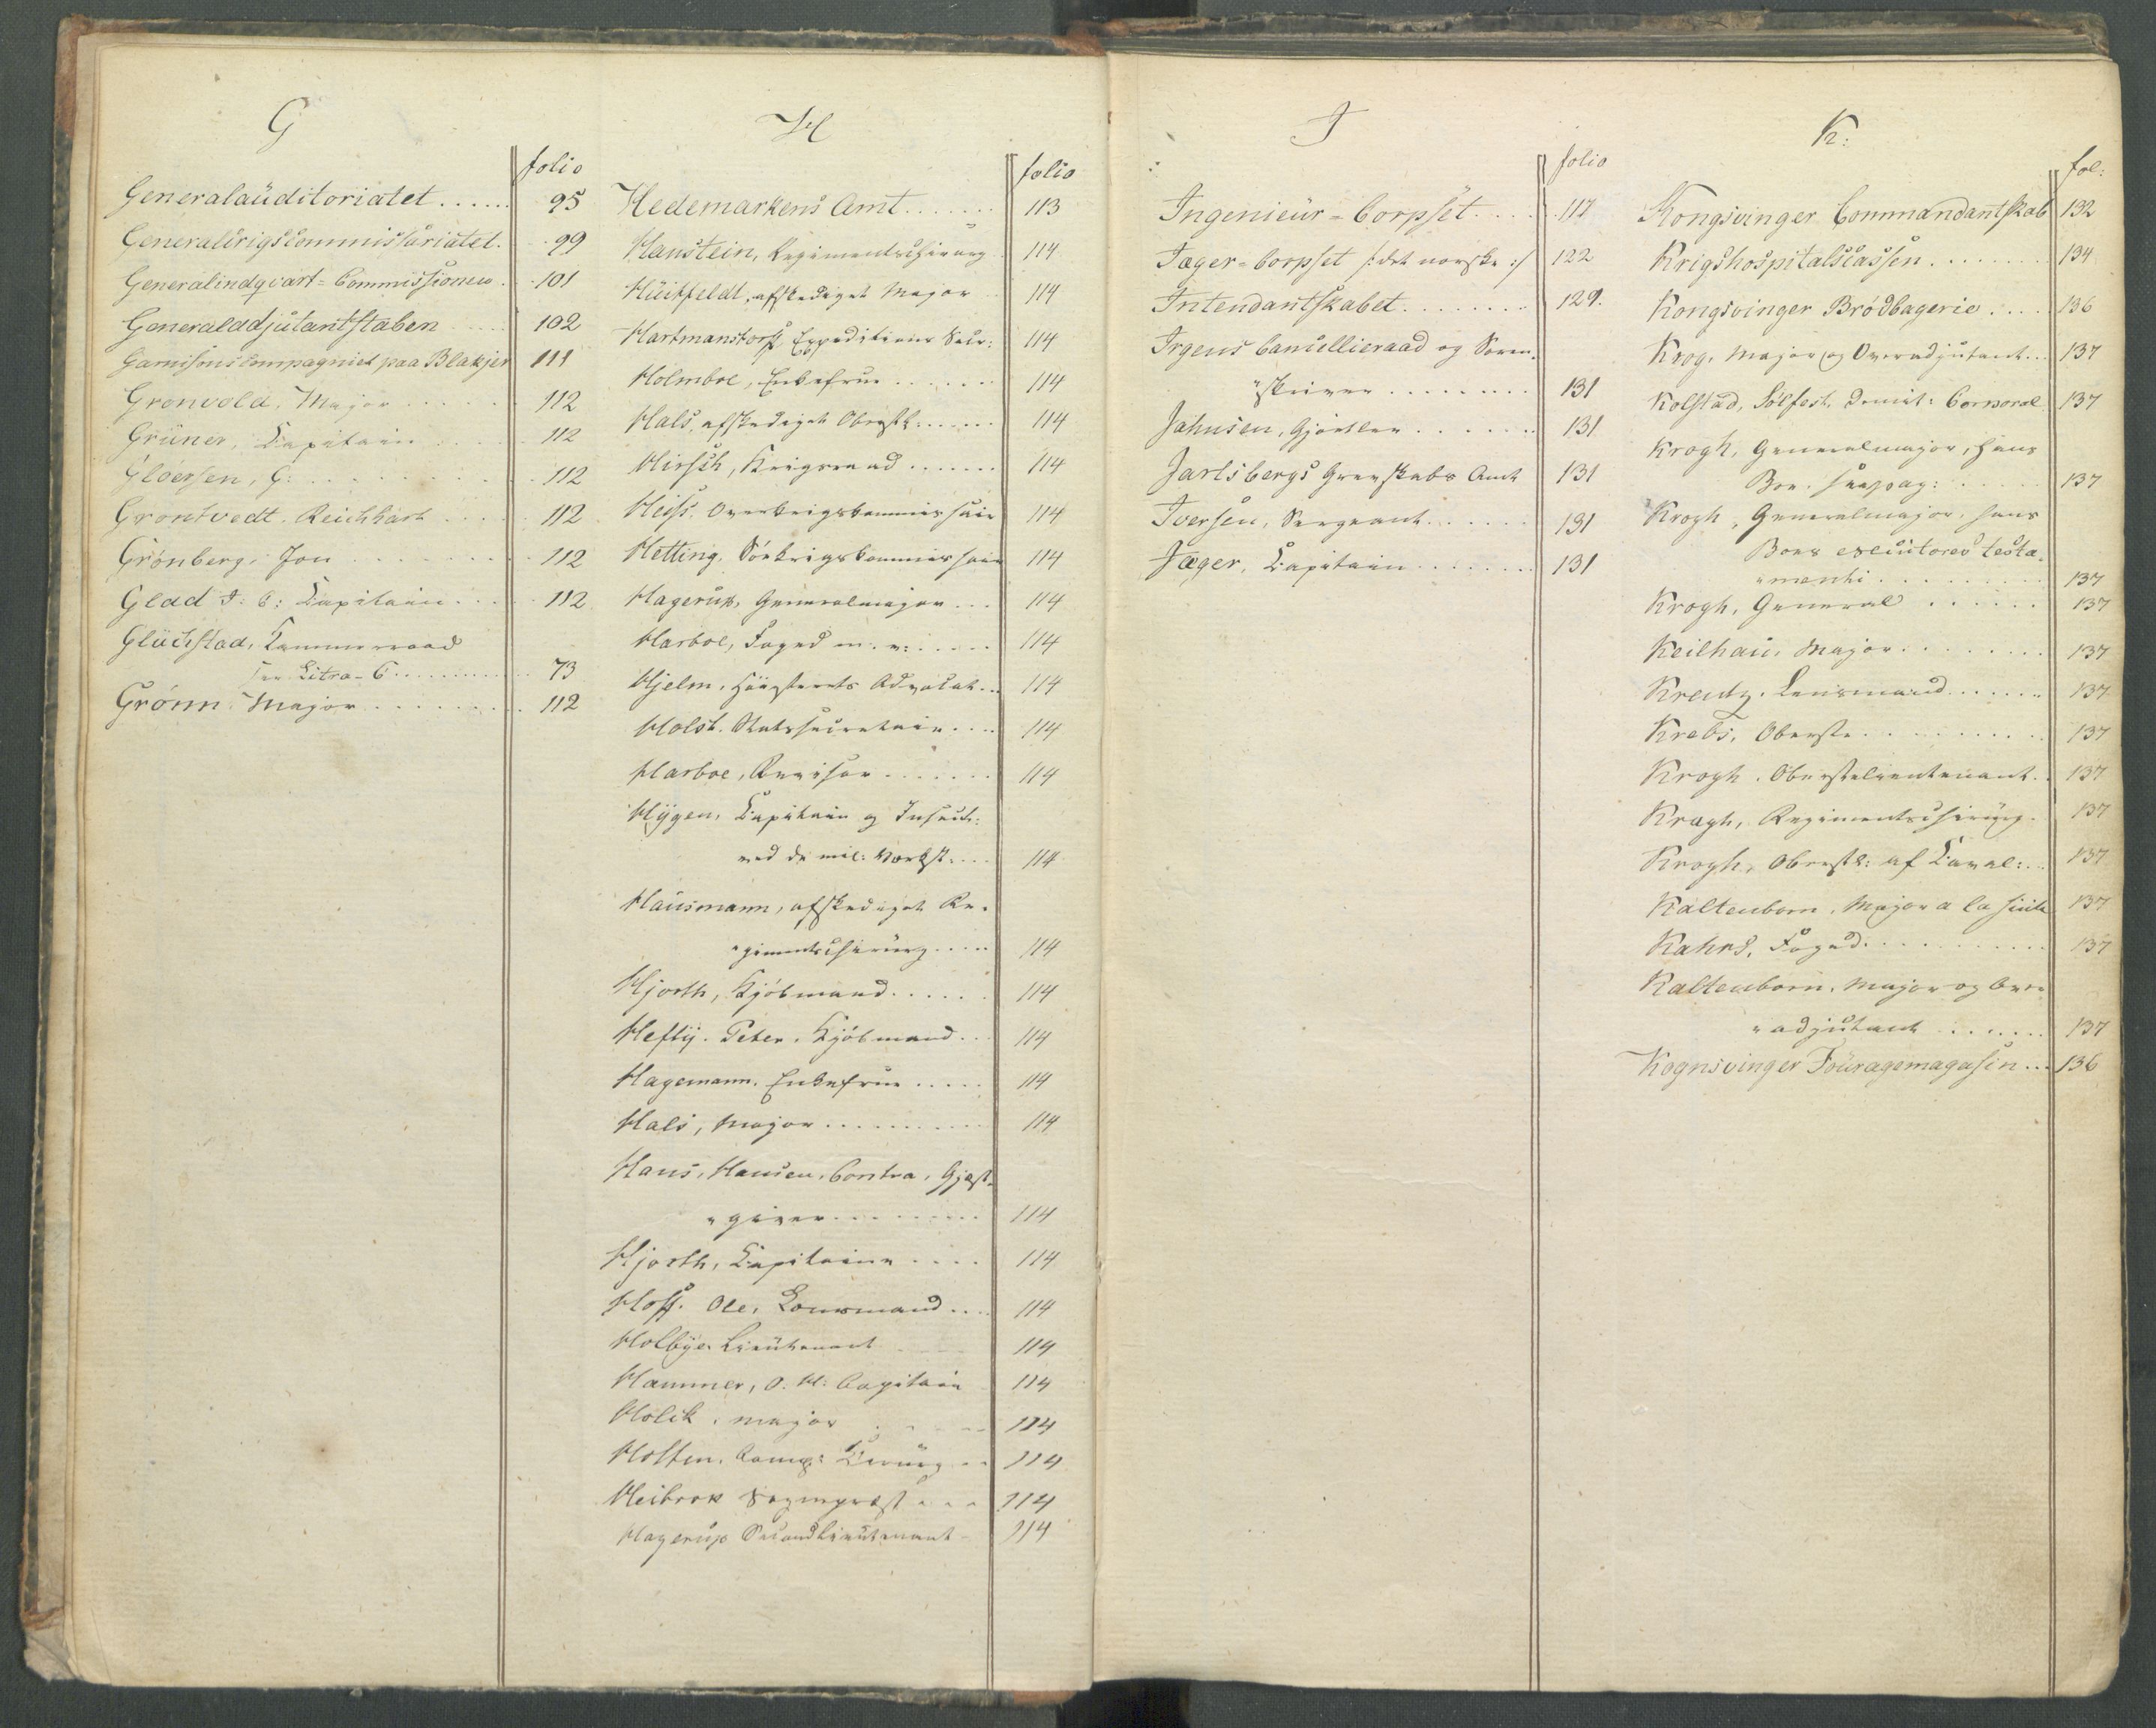 G
folio
Generalaüditoriatet...... 95
Generalkrigscommissariatet. 99
Generalindqvart=Commissionen. 101
Generaladjutantstaben 102
Garnisonscompagniet paa Blakjer 111
Grønvold, Major 112
Grüner, Capitain 112
Gløersen, G: 112
Grøntvedt. Reichhart 112
Grønberg, Jon 112
Glad I: C: Capitain 112
Glückstad, Kammerraad
see Litra-C 73
Grønn Major 112
H
folio
Hedemarkens Amt 113
Hanstein, Regimentschirurg 114
Hüitfeldt, afskediget Major 114
Hartmanstorff Expeditions Secr: 114
Holmboe, Enkefrue 114
Hals, afskediget Oberstl: 114
Hirsch, Krigsraad 114
Heiss. Overkrigskommissair 114
Hetting. Sönkrigskommissair 114
Hagerup, Generalmajor 114
Harboe, Foged m.v: 114
Hjelm, Høiesterets Advokat 114
Holst. Statssecretair 114
Harboe, Revisor 114
Hÿgen, Capitain og
ved de mil: Værkst: 114
Haüsmann, afskediget Re-
"gimentschirürg 114
Hjorth, Kjøbmand 114
Heftÿ. Peter. Kjøbmand 114
Hagemann. Enkefrue 114
Hals, Major 114
Hans, Hansen, Contra, Gjæst-
"giver 114
Hjorth, Capitain 114
Hoff. Ole, Lensmand 114
Holbÿe. Lieütenant 114
Hammer, O. H: Capitain 114
Holck. major 114
Holten. Comp: Chirürg 114
Heibrok Sogneprest 114
Hagerup Secondlieutenant 114
I
folio
Ingenieür=Corpset 117
Jæger=Corpset /:det norske:/ 122
Intendantskabet 129.
Irgens Cancellieraad og Soren-
"skriver 131
Jahnsen, Gjørtler 131
Jarlsbergs Grevskabs Amt 131
Iversen, Sergeant 131
Jæger, Capitain 131
K:
fol:
Kongsvinger Commandantskab 132
Krigshospitalscassen 134
Kongsvinger Brødbagerie 136
Krog, Major og Overadjutant 137
Kolstad, Sølfest. Demit: Corporal 137
Krogh, Generalmajor, hans
Boe. 137
Krogh, Generalmajor, hans
Boes executores testa-
"menti 137
Krogh, General 137
Keilhaü, Major 137
Kreutz. Lensmand 137
Krebs, Oberste 137
Krogh. Oberstelieutenant 137
Kragh, Regimentschirürg 137
Krogh, Oberstl: af Caval: 137
Kaltenborn, Major a la suite 137
Kahrs, Foged 137
Kaltenborn, Major og Over
"adjutant 137
Kognsvinger Foüragemagasin 136